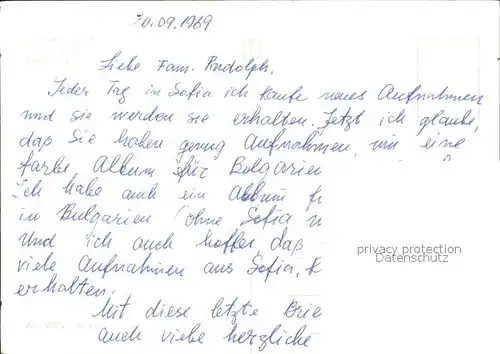 30.09.1969
Liebe Fam. Rudolph,
Jeder Tag in Sofia ich kaufe neues Aufnahmen
und sie werden sie erhalten. Jetzt ich glaube,
daß Sie haben genug Aufnahmen, um eine
farbe Album für Bulgarien
Ich habe auch ein Album
in Bulgarien (ohne Sofia
Und ich auch hoffe, daß
viele Aufnahmen aus Sofia,
erhalten.
Mit diese letzte Brie
auch viele herzliche
privacy protection
Datenschutz